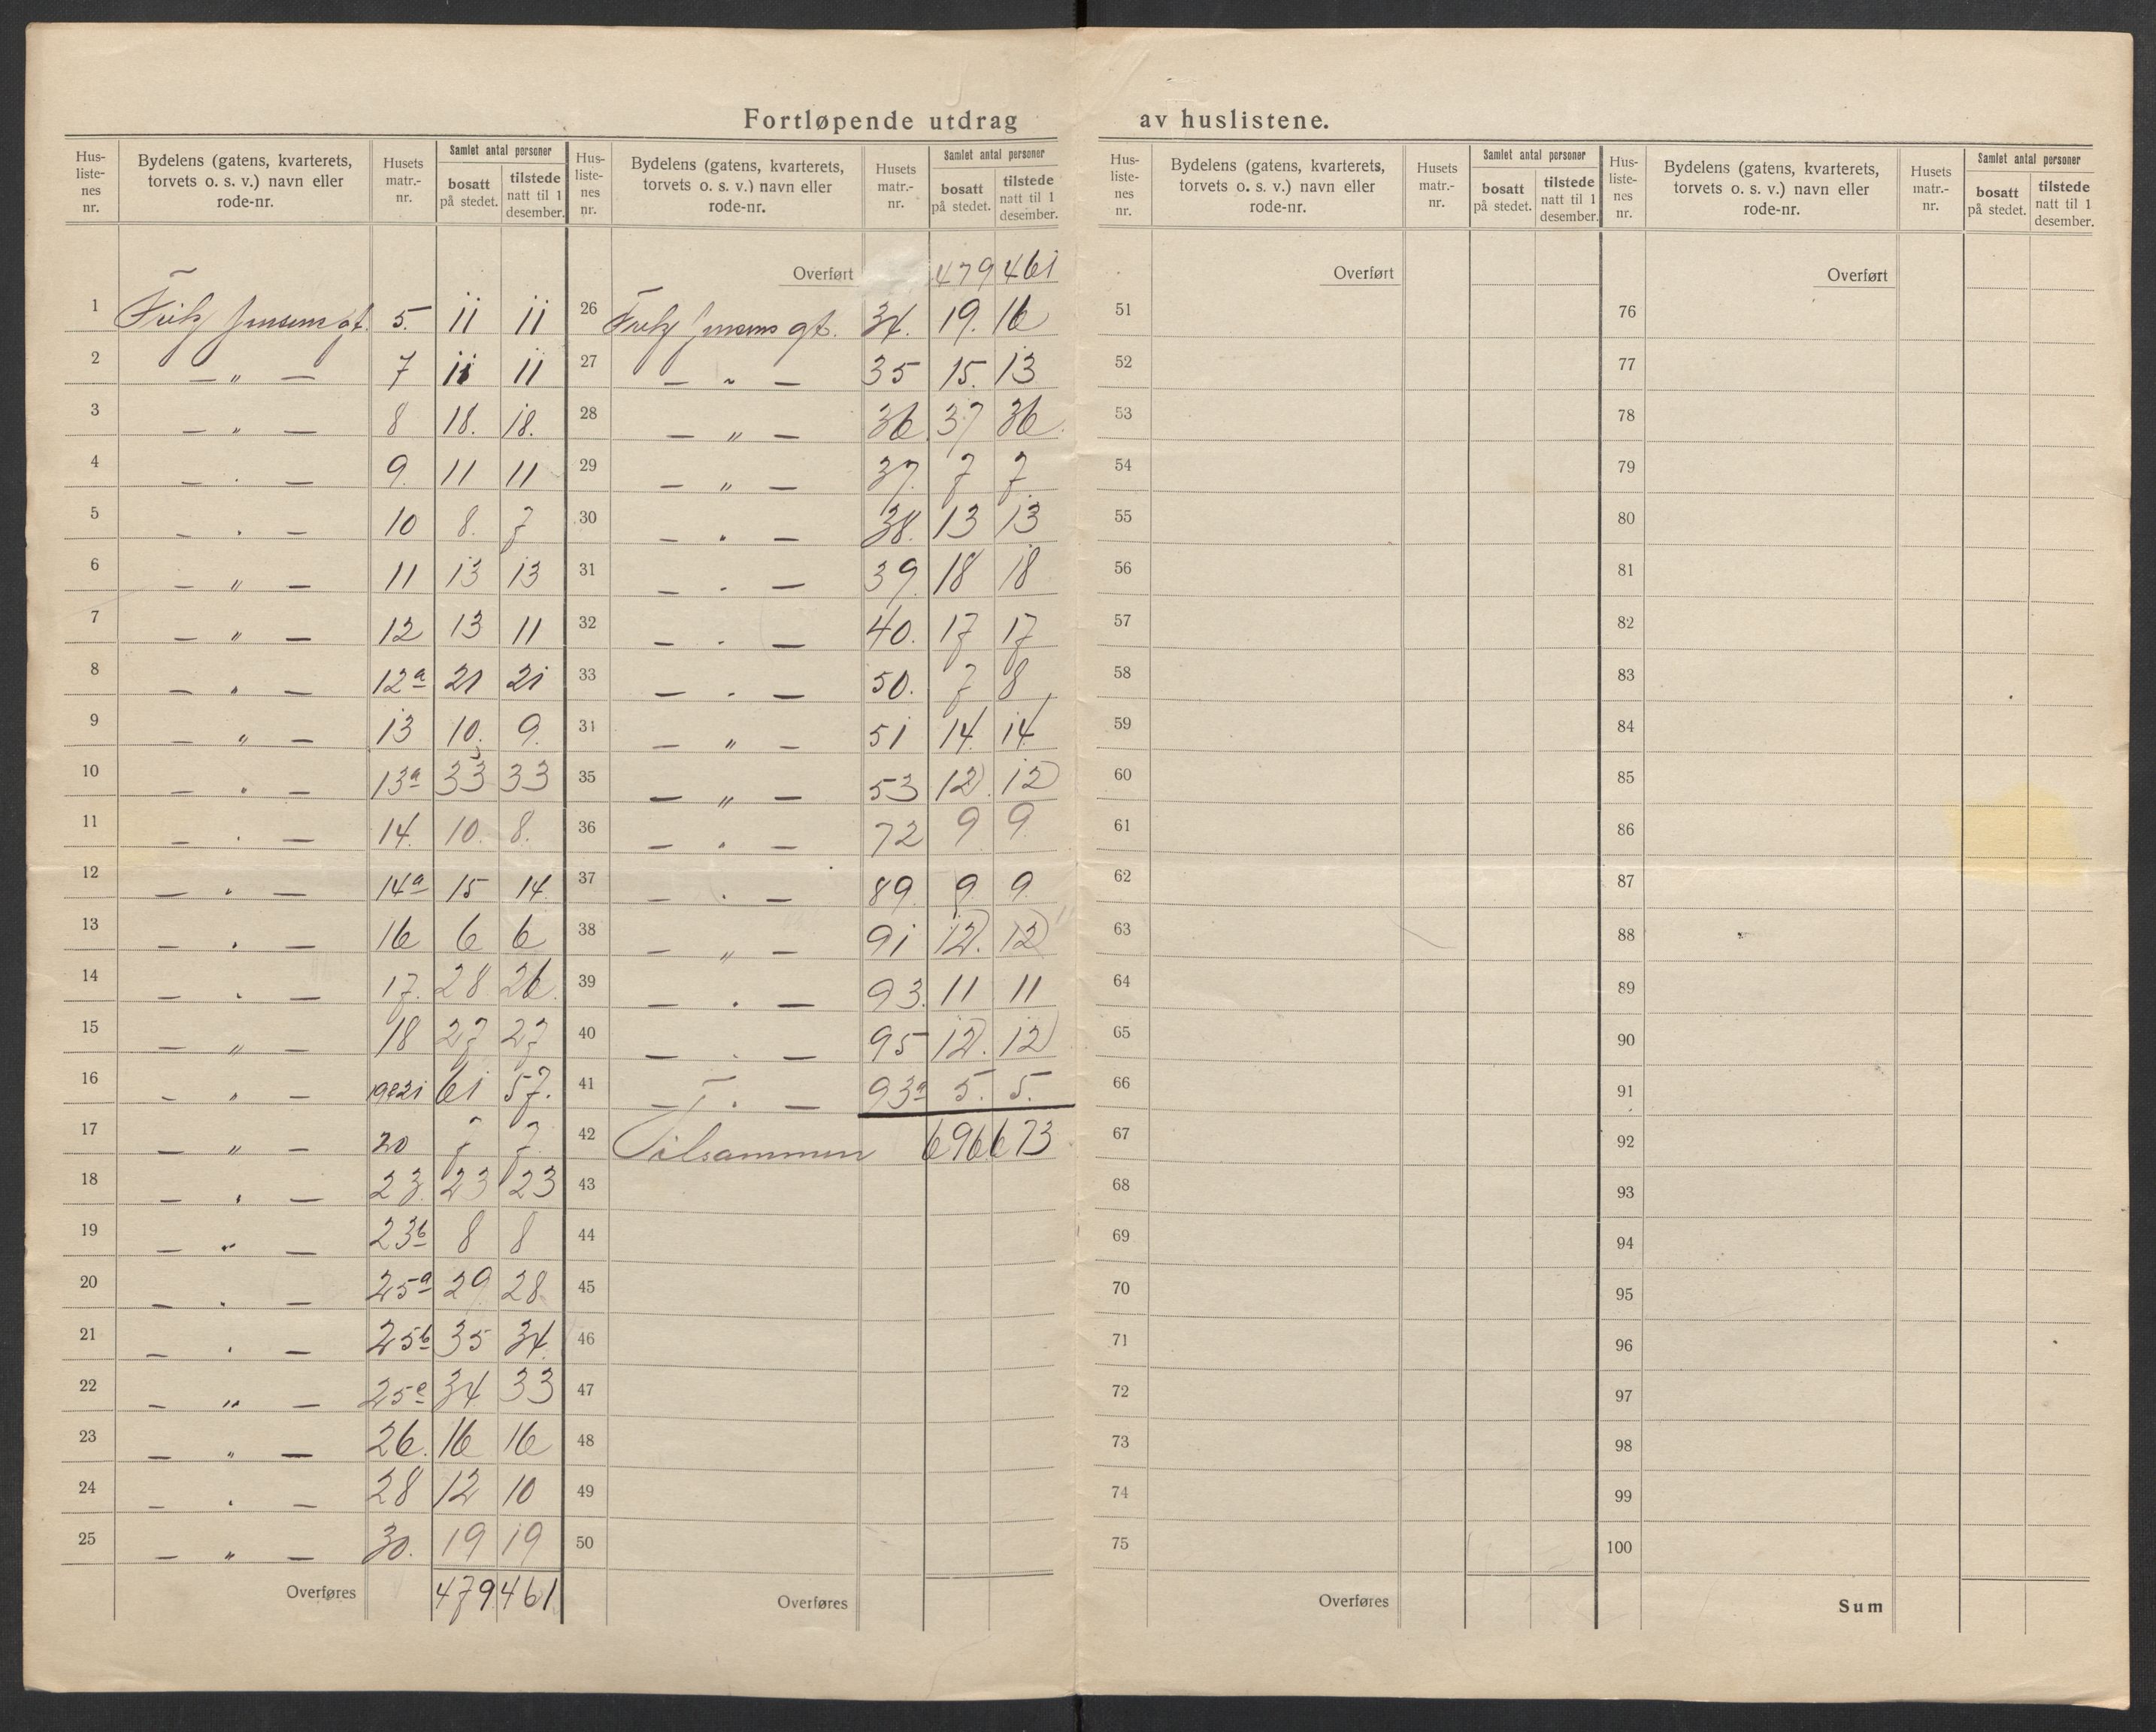 Fortløpende utdrag av huslistene.
Hus-listenes nr. | Bydelens (gatens, kvarterets, torvets o. s. v.) navn eller rode-nr. | Husets matr.-nr. | Samlet antal personer bosatt på stedet. | tilstede natt til 1 desember.
1 Fritz Jensens gt. 5. 11 11
2 — " — 7 11 11
3 — " — 8 18. 18.
4 — " — 9. 11 11
5 — " — 10 8. 7
6 — " — 11 13 13
7 — " — 12 13 11
8 — " — 12a 21 21
9 — " — 13 10. 9.
10 — " — 13a 33 33
11 — " — 14. 10. 8.
12 — " — 14a 15 14
13 — " — 16 6 6
14 — " — 17. 28 26.
15 — " — 18 27 27
16 — " — 19&21 61 57.
17 — " — 20 7 7
18 — " — 23. 23 23
19 — " — 23b 8 8
20 — " — 25a 29 28
21 — " — 25b 35 34
22 — " — 25c 34 33
23 — " — 26. 16 16
24 — " — 28 12 10
25 — " — 30. 19 19
Overføres 479 461
Hus-listenes nr. | Bydelens (gatens, kvarterets, torvets o. s. v.) navn eller rode-nr. | Husets matr.-nr. | Samlet antal personer bosatt på stedet. | tilstede natt til 1 desember.
Overført 479 461
26 Fritz Jensens gt. 34. 19. 16
27 — " — 35 15. 13
28 — " — 36 37 36.
29 — " — 37. 7 7
30 — " — 38. 13 13
31 — " — 39. 18 18
32 — " — 40. 17 17
33 — " — 50. 7 8
34 — " — 51 14. 14
35 — " — 53 12. 12
36 — " — 72 9 9.
37 — " — 89. 9 9.
38 — " — 91 12. 12
39 — " — 93. 11 11
40 — " — 95 12. 12
41 — " — 93a 5. 5.
42 Tilsammen 696 673
43
44
45
46
47
48
49
50
Overføres
Hus-listenes nr. | Bydelens (gatens, kvarterets, torvets o. s. v.) navn eller rode-nr. | Husets matr.-nr. | Samlet antal personer bosatt på stedet. | tilstede natt til 1 desember.
Overført
51
52
53
54
55
56
57
58
59
60
61
62
63
64
65
66
67
68
69
70
71
72
73
74
75
Overføres
Hus-listenes nr. | Bydelens (gatens, kvarterets, torvets o. s. v.) navn eller rode-nr. | Husets matr.-nr. | Samlet antal personer bosatt på stedet. | tilstede natt til 1 desember.
Overført
76
77
78
79
80
81
82
83
84
85
86
87
88
89
90
91
92
93
94
95
96
97
98
99
100
Sum